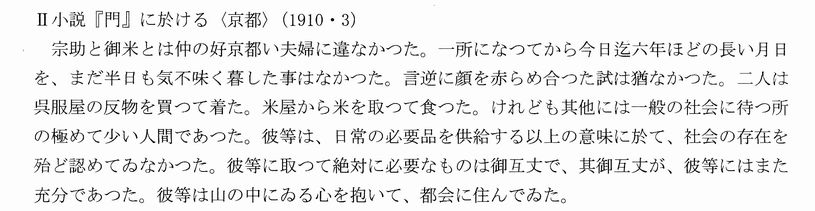 Ⅱ小説『門』に於ける〈京都〉（1910・3）
宗助と御米とは仲の好京都い夫婦に違なかつた。一所になつてから今日迄六年ほどの長い月日
を、まだ半日も気不味く暮した事はなかつた。言逆に顔を赤らめ合つた試は猶なかつた。二人は
呉服屋の反物を買つて着た。米屋から米を取つて食つた。けれども其他には一般の社会に待つ所
の極めて少い人間であつた。彼等は、日常の必要品を供給する以上の意味に於て、社会の存在を
殆ど認めてゐなかつた。彼等に取つて絶対に必要なものは御互丈で、其御互丈が、彼等にはまた
充分であつた。彼等は山の中にゐる心を抱いて、都会に住んでゐた。